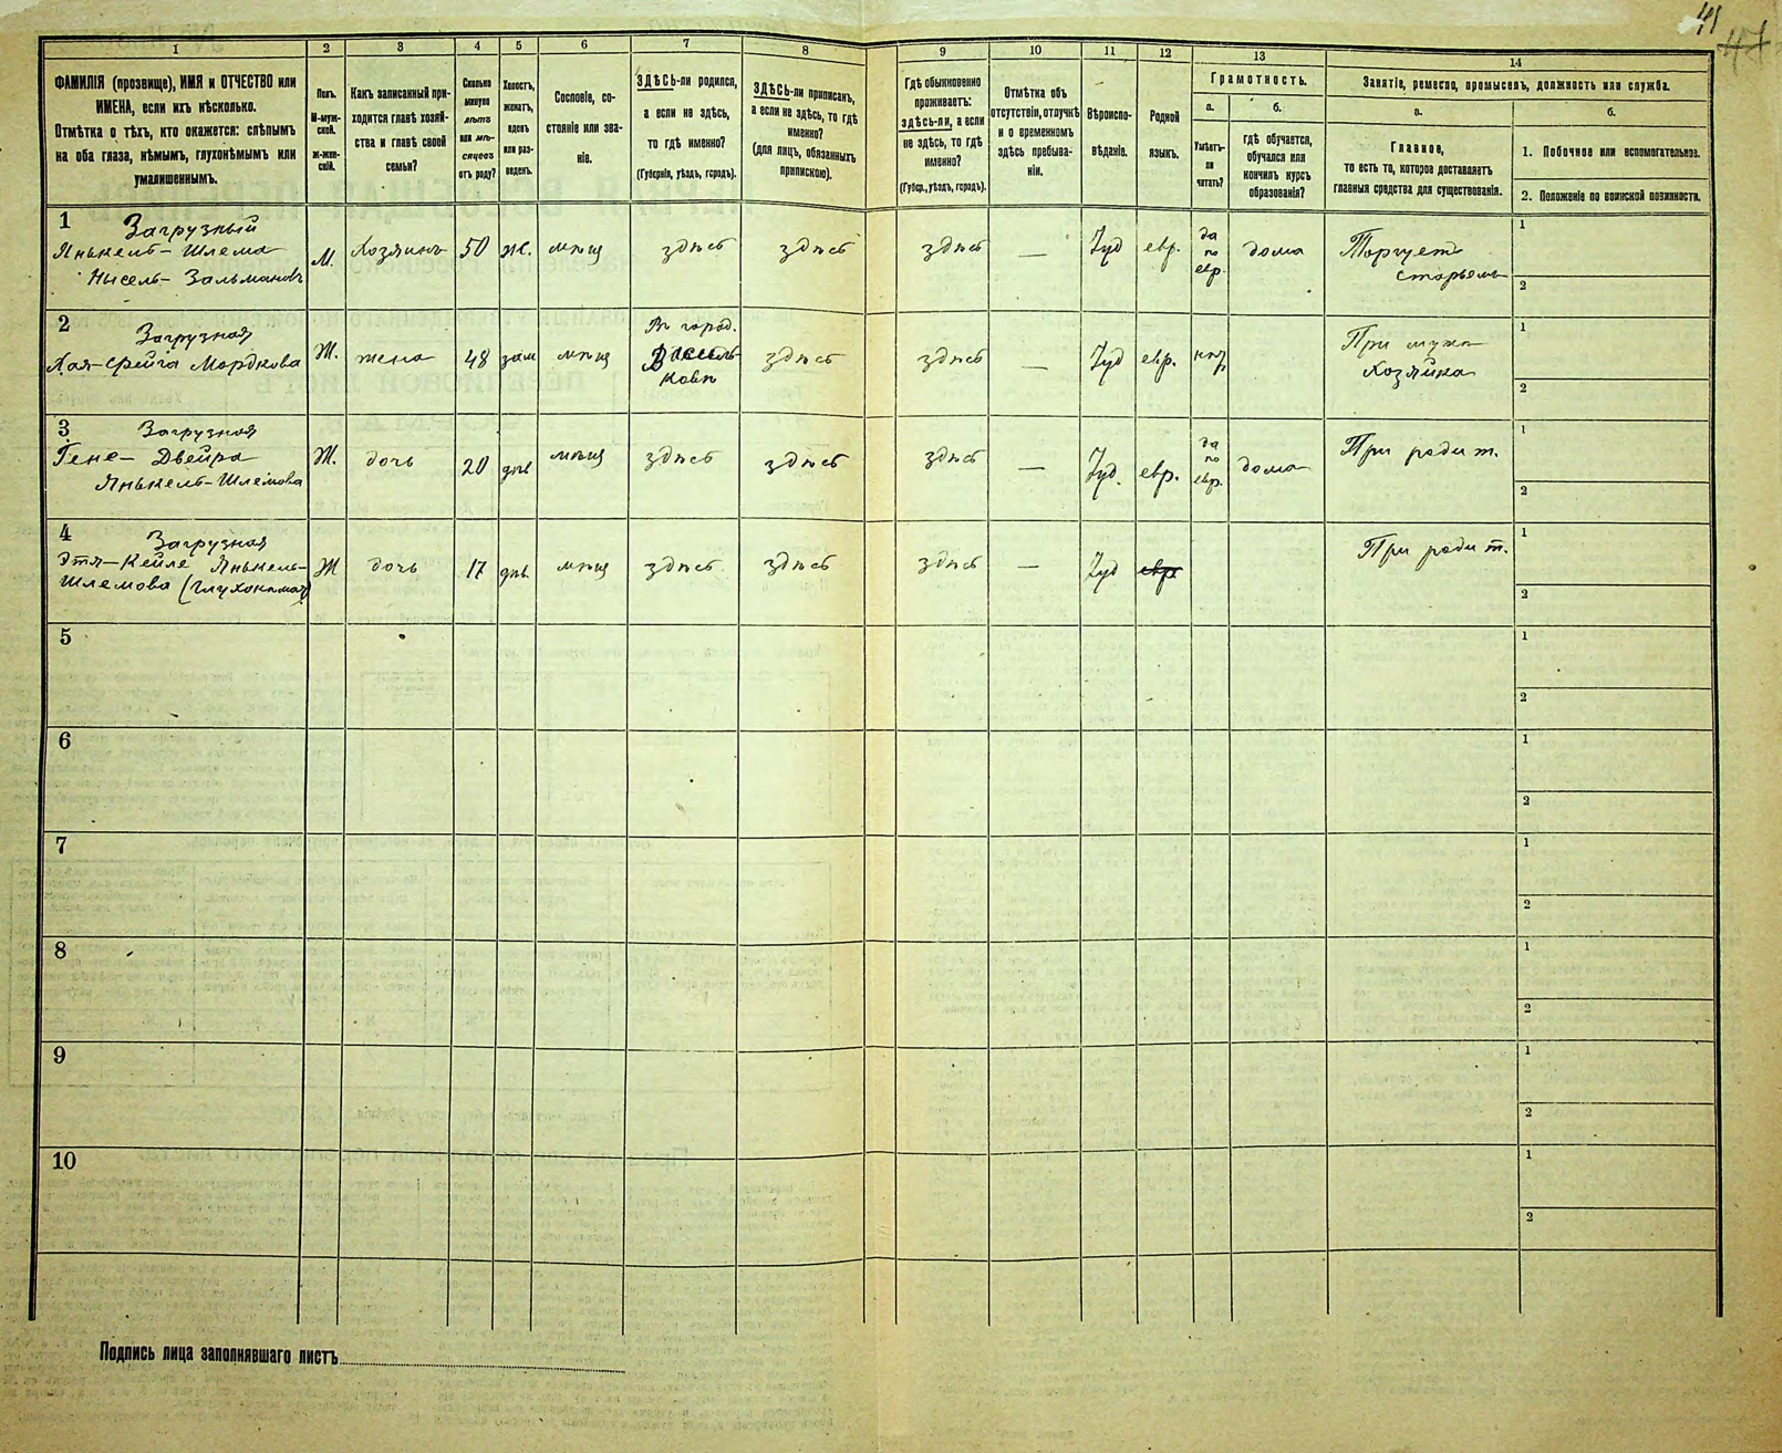 41
41
1
2
3
4
5
6
7
8
9
10
11
12
13
14
ФАМИЛІЯ (прозвище), ИМЯ и ОТЧЕСТВО или
ИМЕНА, если ихъ нѣсколько.
Отмѣтка о тѣхъ, кто окажется: слѣпымъ
на оба глаза, нѣмымъ, глухонѣмымъ или
умалишеннымъ.
Полъ.
М-муж-
ской.
Ж-жен-
скій.
Какъ записанный при-
ходится главѣ хозяй-
ства и главѣ своей
семьи?
Сколько
минуло
лѣтъ
или мѣ-
сяцевъ
отъ роду?
Холостъ,
женатъ,
вдовъ
или раз-
веденъ.
Сословіе, со-
стояніе или зва-
ніе.
ЗДѢСЬ-ли родился,
а если не здѣсь,
то гдѣ именно?
(Губернія, уѣздъ, городъ).
ЗДѢСЬ-ли приписанъ,
а если не здѣсь, то гдѣ
именно?
(для лицъ, обязанныхъ
припискою).
Гдѣ обыкновенно
проживаетъ:
здѣсь-ли, а если
не здѣсь, то гдѣ
именно?
(Губер., уѣздъ, городъ).
Отмѣтка объ
отсутствіи, отлучкѣ
и о временномъ
здѣсь пребыва-
ніи.
Вѣроиспо-
вѣданіе.
Родной
языкъ.
Грамотность.
а.
б.
Умѣетъ-
ли
читать?
гдѣ обучается,
обучался или
кончилъ курсъ
образованія?
Занятіе, ремесло, промыселъ, должность или служба.
а.
б.
Главное,
то есть то, которое доставляетъ
главныя средства для существованія.
1. Побочное или вспомогательное.
2. Положеніе по воинской повинности.
1
Загрузный
Янькель-Шлема
Нысель-Зальмановъ
М.
Хозяинъ
50
ж.
мѣщ
здѣсь
здѣсь
здѣсь
—
Іуд
евр.
да
по
евр.
дома
Торгует
старьемъ
1
2
2
Загрузная
Хая-Фрейга Мордкова
Ж.
жена
48
зам
мѣщ
Въ город.
Василь-
ковѣ
здѣсь
здѣсь
—
Іуд
евр.
нѣт
При мужѣ
Хозяйка
1
2
3
Загрузная
Гене-Двейра
Янькель-Шлемова
Ж.
дочь
20
дѣв
мѣщ
здѣсь
здѣсь
здѣсь
—
Іуд.
евр.
да
по
евр.
дома
При родит.
1
2
4
Загрузная
Этя-Кейле Янькель-
Шлемова (глухонѣмая)
Ж
дочь
17
дѣв.
мѣщ
здѣсь
здѣсь
здѣсь
—
Іуд
евр.
При родит.
1
2
5
1
2
6
1
2
7
1
2
8
1
2
9
1
2
10
1
2
Подпись лица заполнявшаго листъ